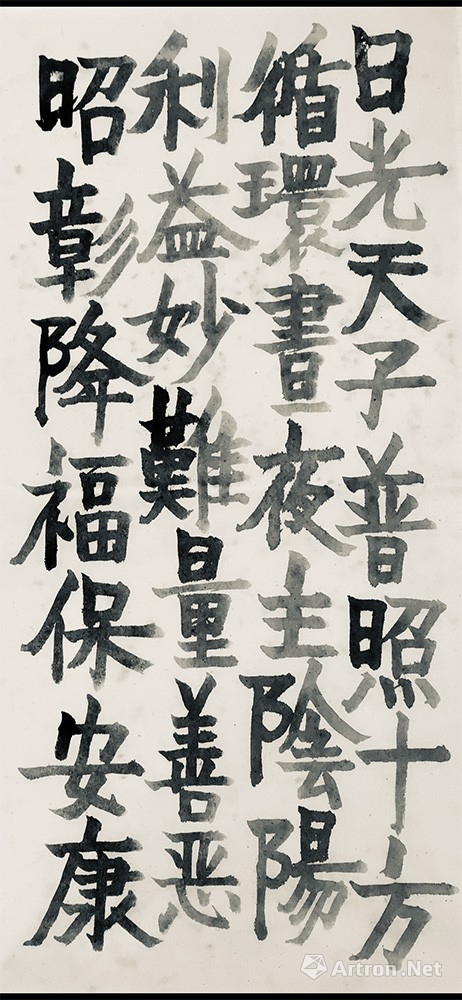 日光天子普照十方
循環晝夜主陰陽
利益妙難量善恶
昭彰降福保安康
Artron.Net